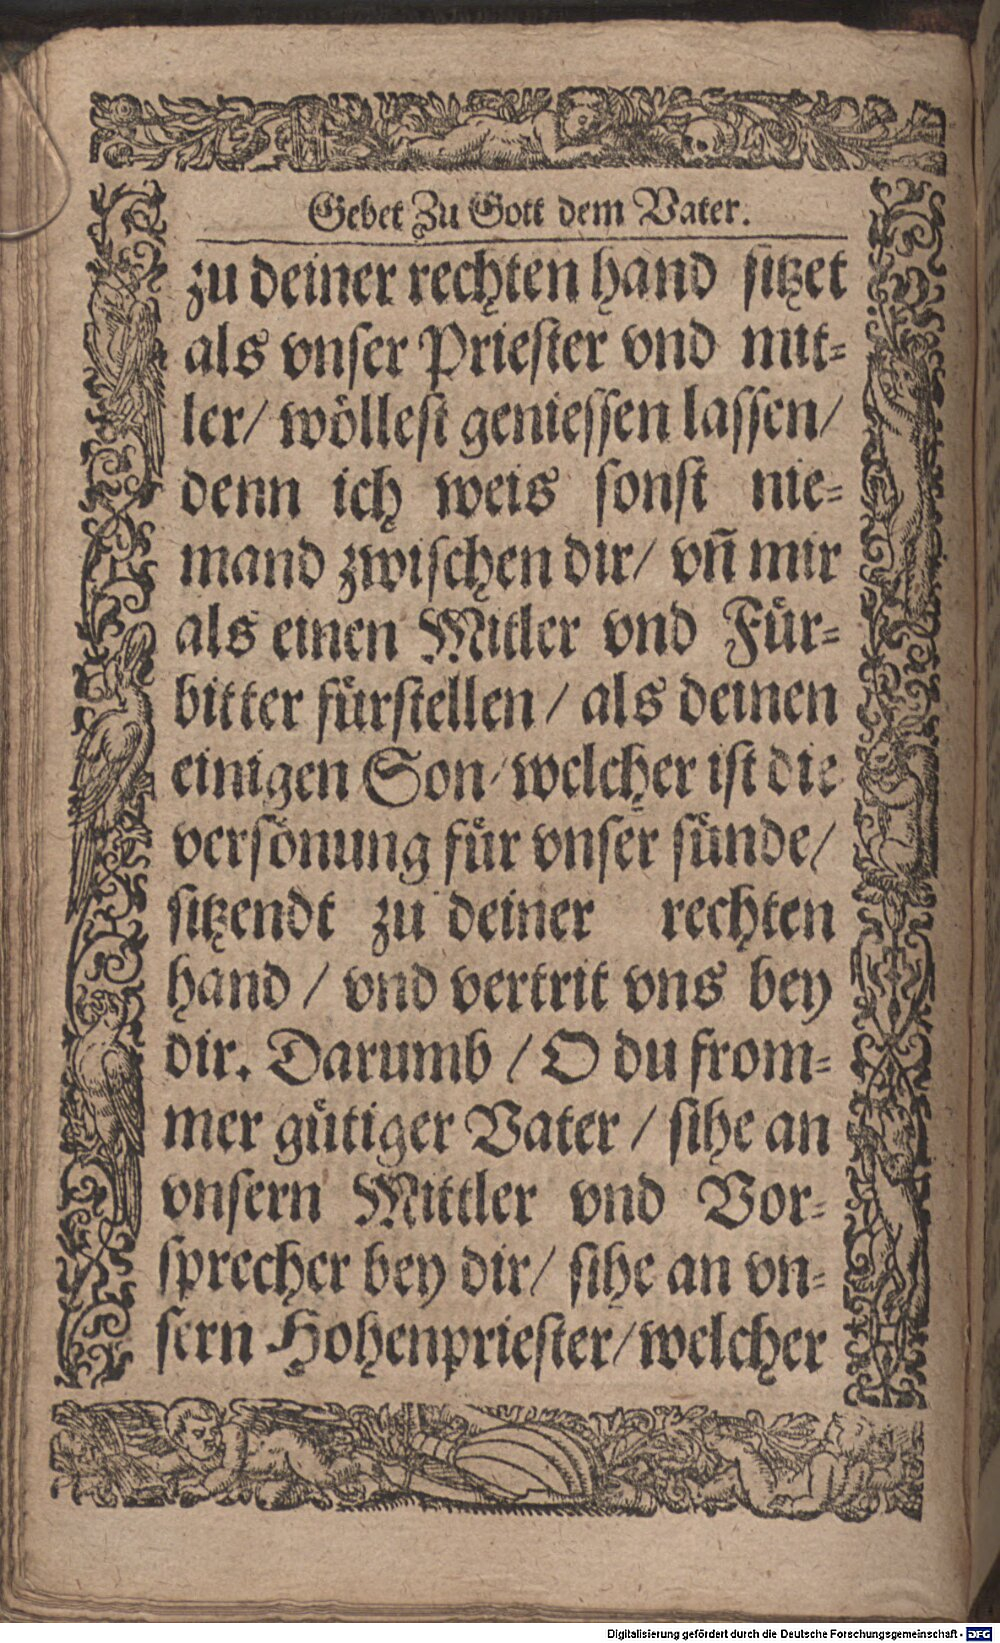 Gebet Zu Gott dem Vater.
zu deiner rechten hand sitzet
als vnser Priester vnd mit-
ler/ wöllest geniessen lassen/
denn ich weis sonst nie-
mand zwischen dir/ vñ mir
als einen Mitler vnd Fuͤr-
bitter fuͤrstellen / als deinen
einigen Son/ welcher ist die
versönung fuͤr vnser suͤnde/
sitzendt zu deiner rechten
hand / vnd vertrit vns bey
dir. Darumb / O du from-
mer guͤtiger Vater / sihe an
vnsern Mittler vnd Vor-
sprecher bey dir/ sihe an vn-
sern Hohenpriester/ welcher
Digitalisierung gefördert durch die Deutsche Forschungsgemeinschaft - DFG